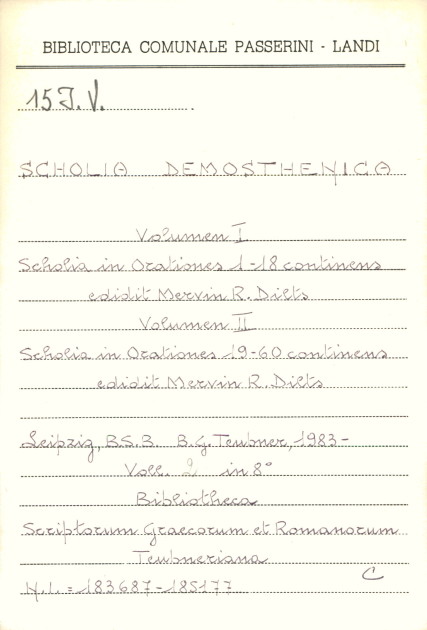 BIBLIOTECA COMUNALE PASSERINI - LANDI
15 J. V.
SCHOLIA DEMOSTHENICA
Volumen I
Scholia in Orationes 1-18 continens
edidit Mervin R. Dilts
Volumen II
Scholia in Orationes 19-60 continens
edidit Mervin R. Dilts
Leipzig, B.S.B. B.G. Teubner, 1983-
Voll. 2 in 8°
Bibliotheca
Scriptorum Graecorum et Romanorum
Teubneriana
N.I. = 183687-185177
C